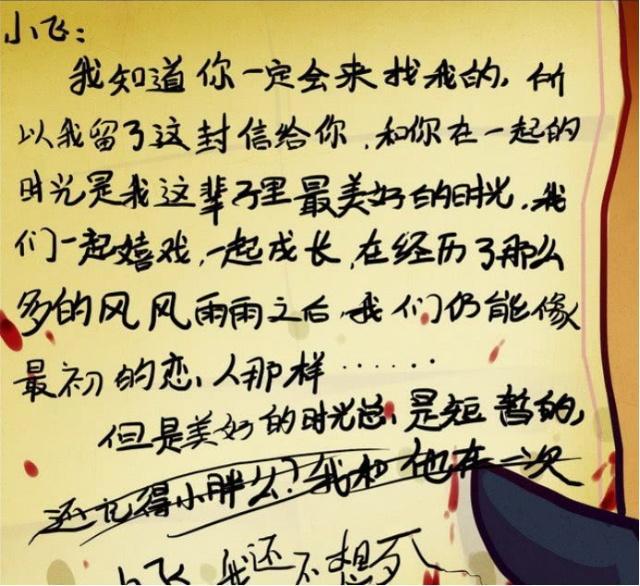 小飞：
我知道你一定会来找我的，所
以我留了这封信给你，和你在一起的
时光是我这辈子里最美好的时光，我
们一起嬉戏，一起成长，在经历了那么
多的风风雨雨之后，我们仍能像
最初的恋人那样……
但是美好的时光总是短暂的，
还记得小胖么？我和他在一次
小飞 我还不想死